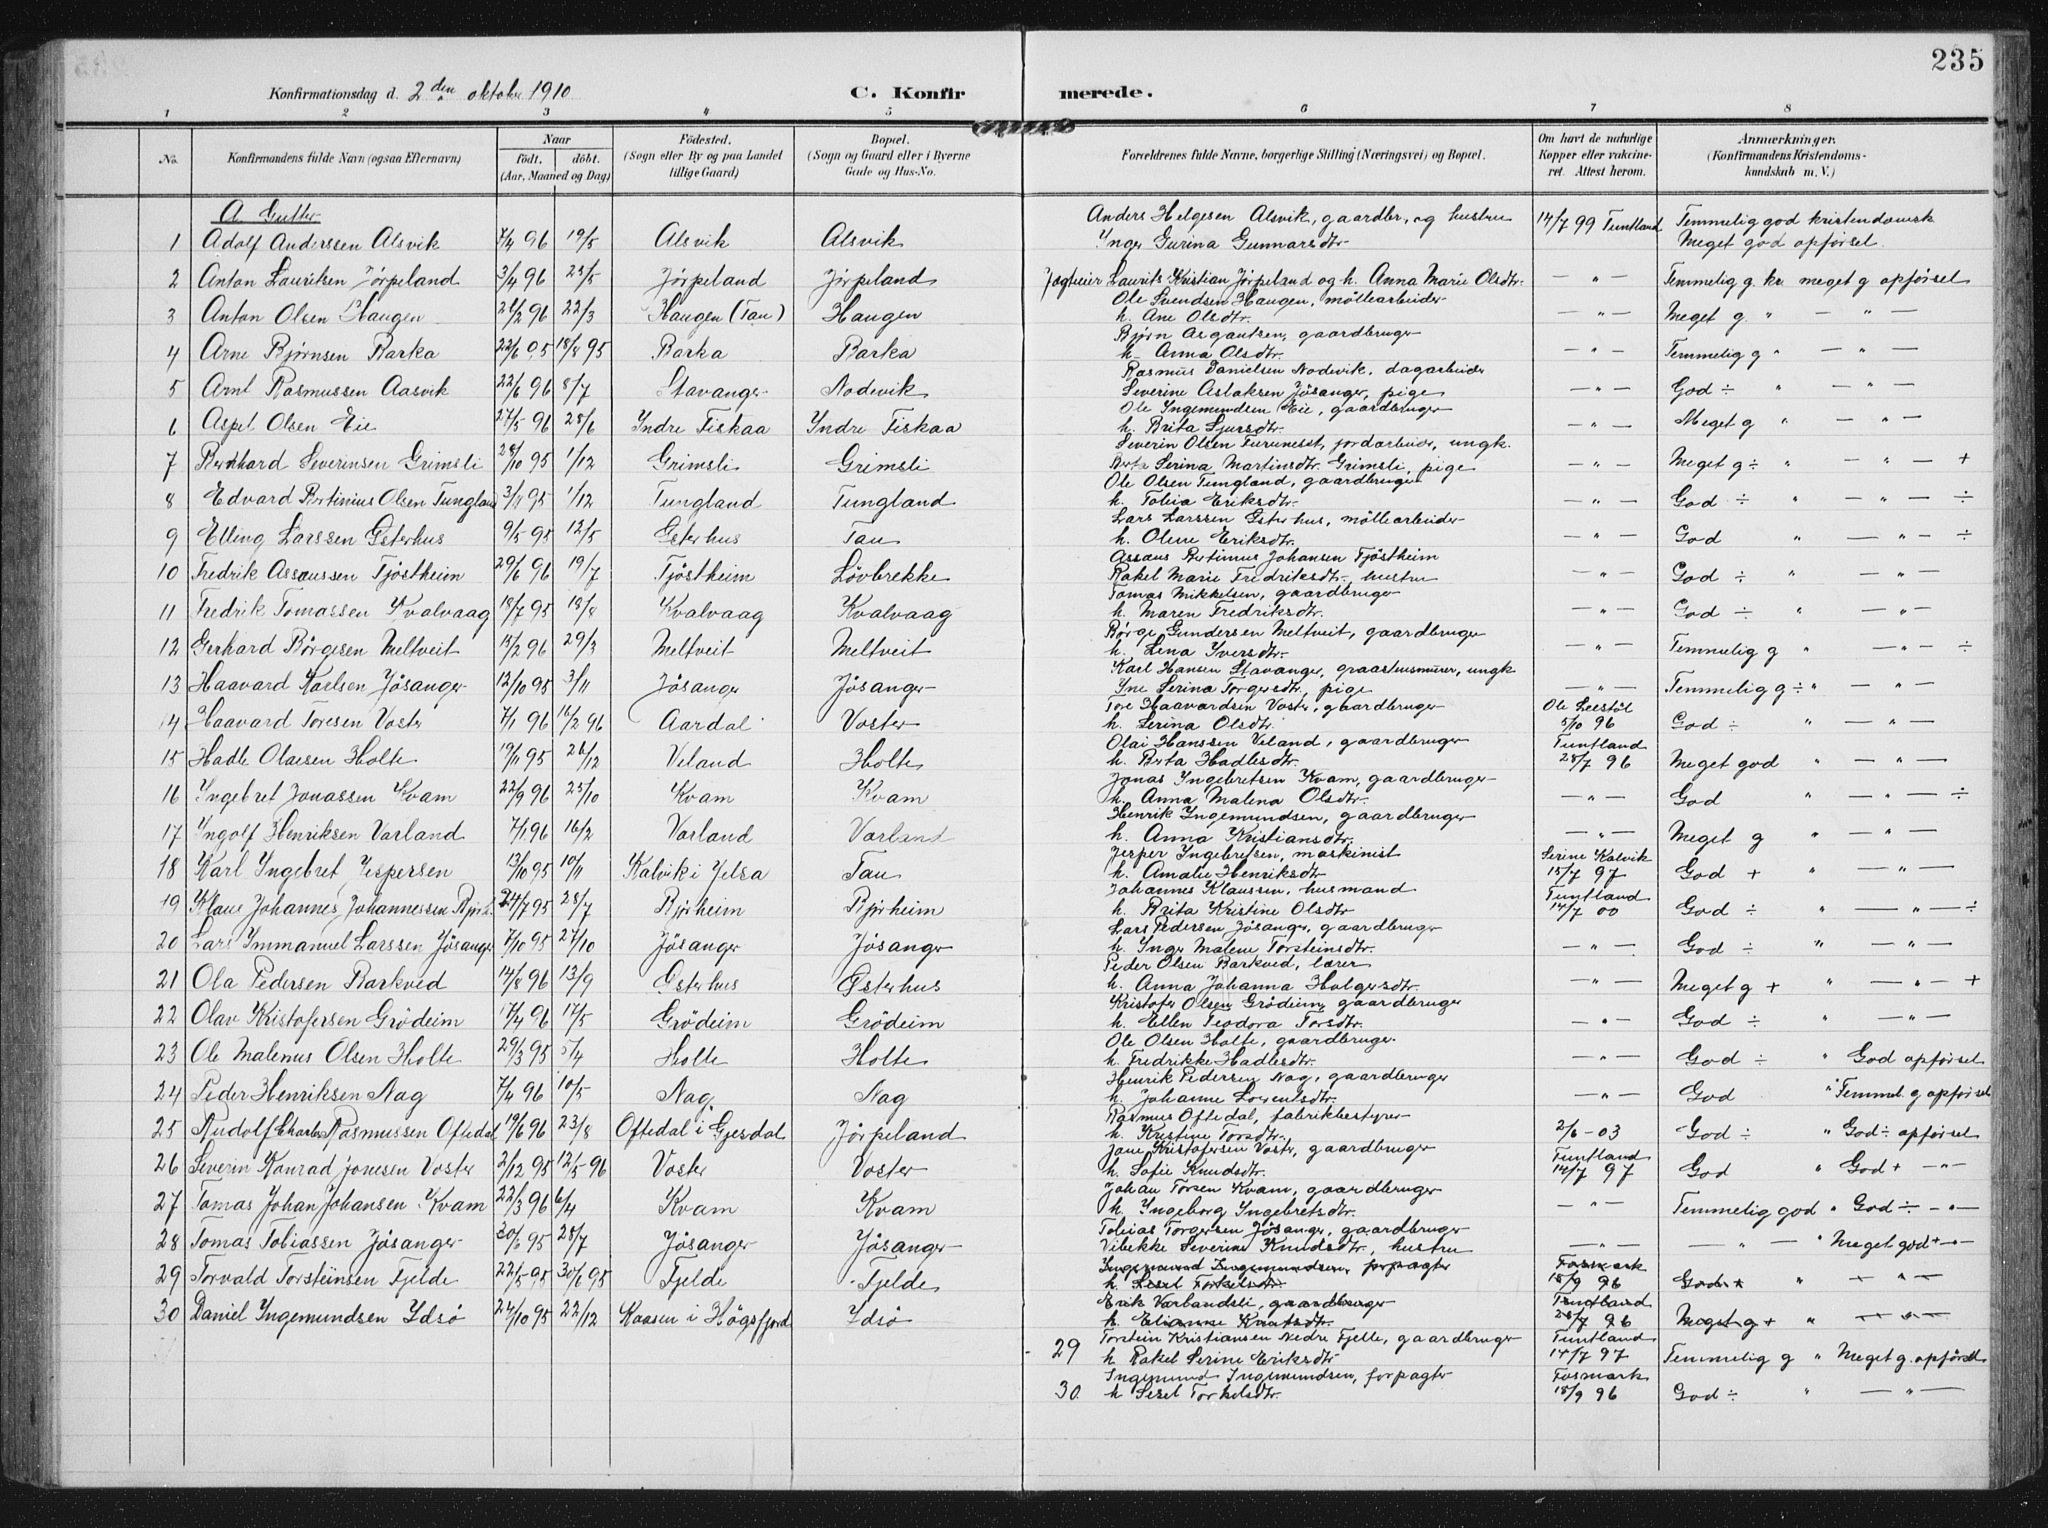 235
Konfirmationsdag d. 2den oktober 1910 C. Konfirmerede.
1 2 3 4 5 6 7 8
No. Konfirmandens fulde Navn (ogsaa Efternavn) Naar født. døbt. (Aar, Maaned og Dag) Fødested. (Sogn eller By og paa Landet tillige Gaard) Bopæl. (Sogn og Gaard eller i Byerne Gade og Hus-No. Forældrenes fulde Navne, borgerlige Stilling (Næringsvei) og Bopæl. Om havt de naturlige Kopper eller vakcineret. Attest herom. Anmærkninger. (Konfirmandens Kristendomskundskab m. V.)
A. Gutter
1 Adolf Anderssen Alsvik 7/4 96 19/5 Alsvik Alsvik Anders Helgesen Alsvik, gaardbr, og hustru Inger Gurina Gunnarsdtr. 14/7 99 Tuntland Temmelig god kristendomsk Meget god opførsel.
2 Anton Lauritsen Jørpeland 3/4 96 25/5 Jørpeland Jørpeland Laurits Kristian Jørpeland og h. Anna Marie Olsdtr. — " — Temmelig g. kr. meget g opførsel
3 Anton Olsen Haugen 26/2 96 22/3 Haugen (Tau) Haugen Ole Svendsen Haugen, møllearbeider h. Ane Olsdtr. — " — Meget g. " — " —
4 Arne Bjørnsen Barka 22/6 95 18/8 95 Barka Barka Bjørn Asgautsen, gaardbruger h. Anna Olsdtr. — " — Temmelig g " — " —
5 Arnt Rasmussen Aasvik 22/6 96 8/7 Stavanger Nodevik Rasmus Danielsen Nodevik, dagarbeider Severine Aslaksen Jøsanger, pige — " — God ÷ " — " —
6 Olsen Eie 27/5 96 28/6 Yndre Fiskaa Yndre Fiskaa Ole Ingemundsen Eie, gaardbruger h. Brita Sjursdtr. — " — Meget g " — " —
7 Bernhard Severinsen Grimsli 28/10 95 1/12 Grimsli Grimsli Severin Olsen jordarbeider, ungk. Berta Serina Martinsdtr. Grimsli, pige — " — Meget g ÷ " — " — +
8 Edvard Bertinius Olsen Tungland 3/11 95 1/12 Tungland Tungland Ole Olsen Tungland, gaardbruger h. Tobia Eriksdtr. — " — God ÷ " — " — ÷
9 Elling Larssen Østerhus 9/5 95 12/5 Østerhus Tau Lars Larssen Østerhus, møllearbeider h. Oline Eriksdtr. — " — God " — " — ÷
10 Fredrik Assaussen Tjøstheim 29/6 96 19/7 Tjøstheim Løvbrekke Assaus Bertinius Johansen Tjøstheim Rakel Marie Fredriksdtr. hustru — " — God ÷ " — " —
11 Fredrik Tomassen Kvalvaag 18/7 95 18/8 Kvalvaag Kvalvaag Tomas Mikkelsen, gaardbruger h. Maren Fredriksdtr. — " — God ÷ " — " —
12 Gerhard Børgesen Meltveit 15/2 96 29/3 Meltveit Meltveit Børge Gundersen Meltveit, gaardbruger h. Lina Iversdtr. — " — Temmelig g " — " — ÷
13 Haavard Karlsen Jøsanger 12/10 95 3/11 Jøsanger Jøsanger Karl Hansen Stavanger, ungk Serina Torgersdtr., pige — " — Temmelig g ÷ " — " —
14 Haavard Toresen Voster 7/1 96 16/2 96 Aardal Voster Tore Haavardsen Voster, gaardbruger h. Serina Olsdtr. 5/10 96 God ÷ " — " —
15 Hadle Olaesen Holte 19/11 95 26/12 Veland Holte Olai Hanssen Veland, gaardbruger h. Berta Hadlesdtr. Tuntland 28/7 96 Meget god " — " —
16 Ingebret Jonassen Kvam 22/9 96 25/10 Kvam Kvam Jonas Ingebretsen Kvam, gaardbruger h. Anna Malena Olsdtr. — " — God " — " — ÷
17 Ingolf Henriksen Varland 7/1 96 16/2 Varland Varland Henrik Ingemundsen, gaardbruger h. Anna Kristiansdtr. — " — Meget g " — " —
18 Karl Ingebret Jespersen 13/10 95 10/11 Kalvik i Jelsa Tau Jesper Ingebretsen, maskinist h. Amalie Henriksdtr Serine Kalvik 15/7 97 God + " — " —
19 Klaus Johannes Johannessen 24/7 95 28/7 Bjørheim Bjørheim Johannes Klaussen, husmand h. Brita Kristine Olsdtr Tuntland 14/7 00 God ÷ " — " — ÷
20 Lars Immanuel Larssen Jøsanger 7/10 95 27/10 Jøsanger Jøsanger Lars Pedersen Jøsanger, gaardbruger h. Inger Malene Torsteinsdtr. — " — God ÷ " — " —
21 Ola Pedersen Barkved 14/8 96 13/9 Østerhus Østerhus Peder Olsen Barkved, lærer h. Anna Johanna Holgersdtr. — " — Meget g + " — " — +
22 Olav Kristofersen Grødeim 17/4 96 17/5 Grødeim Grødeim Kristofer Olsen Grødeim, gaardbruger h. Ellen Teodora Torsdtr. — " — God ÷ " — " —
23 Ole Malenus Olsen Holte 29/3 95 5/4 Holte Holte Ole Olsen Holte, gaardbruger. h. Fredrikke Hadlesdtr. — " — God ÷ " God opførsel
24 Peder Henriksen Nag 7/4 96 10/5 Nag Nag Henrik Pedersen Nag, gaardbruger h. Johanne Lorentsdtr. — " — God " Temmel. g opførsel
25 Rudolf Charles Rasmussen Oftedal 19/6 96 23/8 Oftedal i Gjesdal Jørpeland Rasmus Oftedal, fabrikbestyrer h. Kristine Torsdtr. 2/6 - 03 God ÷ " God ÷ opførsel
26 Severin Konrad Jonesen Voster 2/12 95 12/5 96 Voster Voster Jone Kristofersen Voster, gaardbruger h. Sofie Knudsdtr. Tuntland 14/7 97 God " God + — " —
27 Tomas Johan Johansen Kvam 22/3 96 6/4 Kvam Kvam Johan Torsen Kvam, gaardbruger h. Ingeborg Ingebretsdtr. — " — Temmelig god " God ÷ — " —
28 Tomas Tobiassen Jøsanger 30/6 95 28/7 Jøsanger Jøsanger Tobias Torgersen Jøsanger, gaardbruger Vibekke Severine Knudsdtr, hustru — " — — " — " Meget god + " —
29 Torvald Torsteinsen Fjelde 22/5 95 30/6 95 Fjelde Fjelde Ingemund Ingemundsen, forpagter h. Sesel Torkelsdtr Fosmark 18/9 96 God + " — " —
30 Daniel Ingemundsen Idsø 24/10 95 22/12 Kaasen i Høgsfjord Idsø Erik Varlandsli, gaardbruger h. Elianne Knutsdtr. Tuntland 28/7 96 Meget g + " — " —
29 Torstein Kristiansen Nedre Fjelle, gaardbruger h Rakel Serine Eriksdtr Tuntland 14/7 97 Temmelig g " Meget g. opførsel
30. Ingemund Ingemundsen, forpagter h Sesel Torkelsdtr. Fosmark 18/9 96 God ÷ " — " —